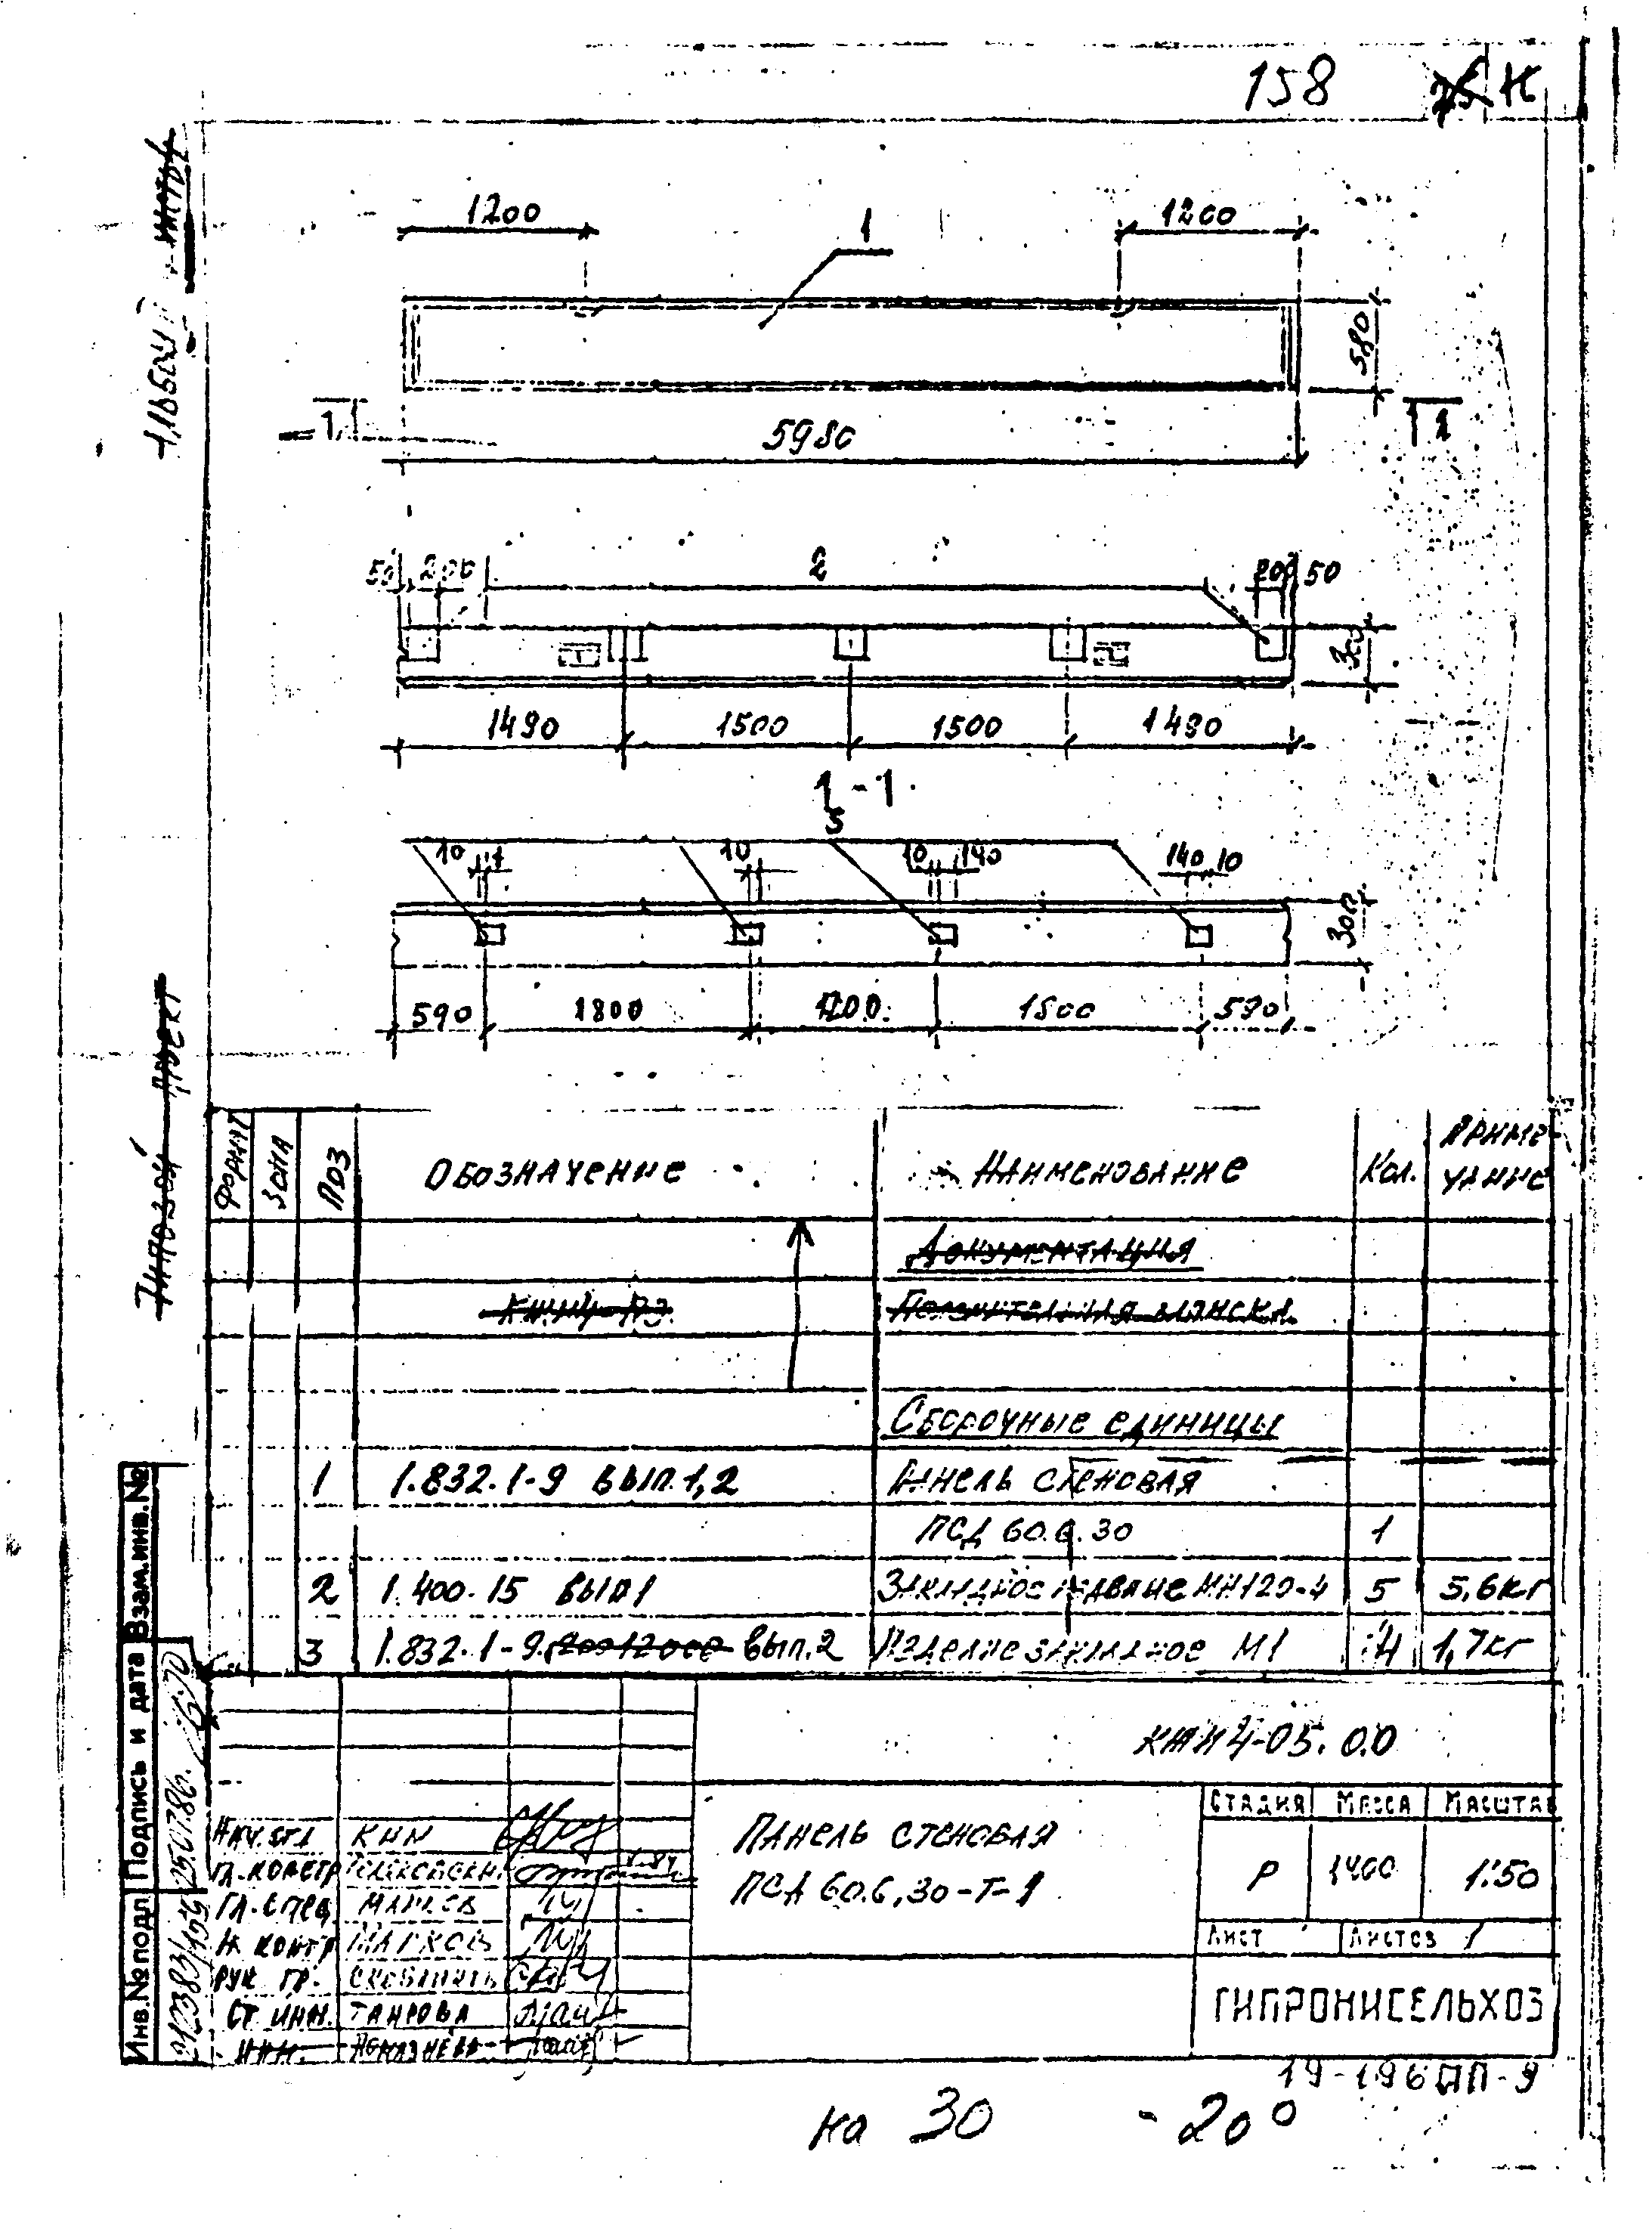 158
1200
1
1200
580
1
1
5980
50
200
2
200
50
300
1490
1500
1500
1490
1-1
3
10
10
10
140
140
10
300
590
1800
1200
1800
590
Формат
Зона
Поз
Обозначение
Наименование
Кол.
Приме-
чание
Документация
Пояснительная записка
Сборочные единицы
1
1.832.1-9 вып.1,2
Панель стеновая
ПСД 60.6.30
1
2
1.400-15 вып1
Закладное МН120-4
5
5,6кг
3
1.832.1-9. вып.2
Изделие закладное М1
4
1,7кг
Типовой проект
Альбом
Взам.инв.№
Подпись и дата
Инв.№ подл
КЖИ4-05.00
Панель стеновая
ПСД 60.6.30-Т-1
Стадия
Масса
Масштаб
Р
1400
1:50
Лист
Листов 1
ГИПРОНИСЕЛЬХОЗ
Нач.отд
Ким
Гл.констр
Гл.спец
Н контр
Марков
Рук гр.
Ст.инж.
Таирова
Инж.
на 30
-20°